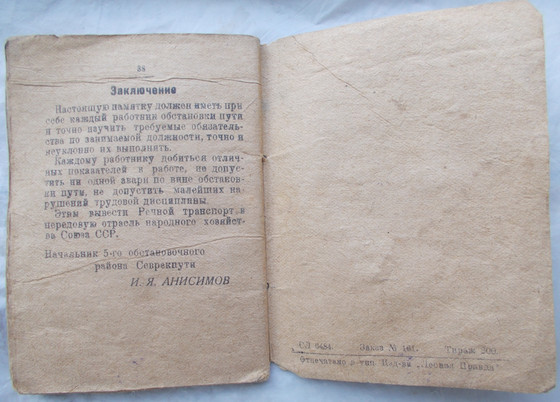 28
Заключение
Настоящую памятку должен иметь при
себе каждый работник обстановки пути
и точно изучить требуемые обязатель-
ства по занимаемой должности, точно и
неуклонно их выполнять.
Каждому работнику добиться отлич-
ных показателей в работе, не допус-
тить ни одной авари по вине обстанов-
ки пути, не допустить малейших на-
рушений трудовой дисциплины.
Этим вывести Речной транспорт в
передовую отрасль народного хозяйст-
ва Союза ССР.
Начальник 5-го обстановочного
района Севрекпути
И. Я. АНИСИМОВ
СЛ 0484 Заказ № Тираж 200
Отпечатано в тип. Изд-ва „Лесная Правда“